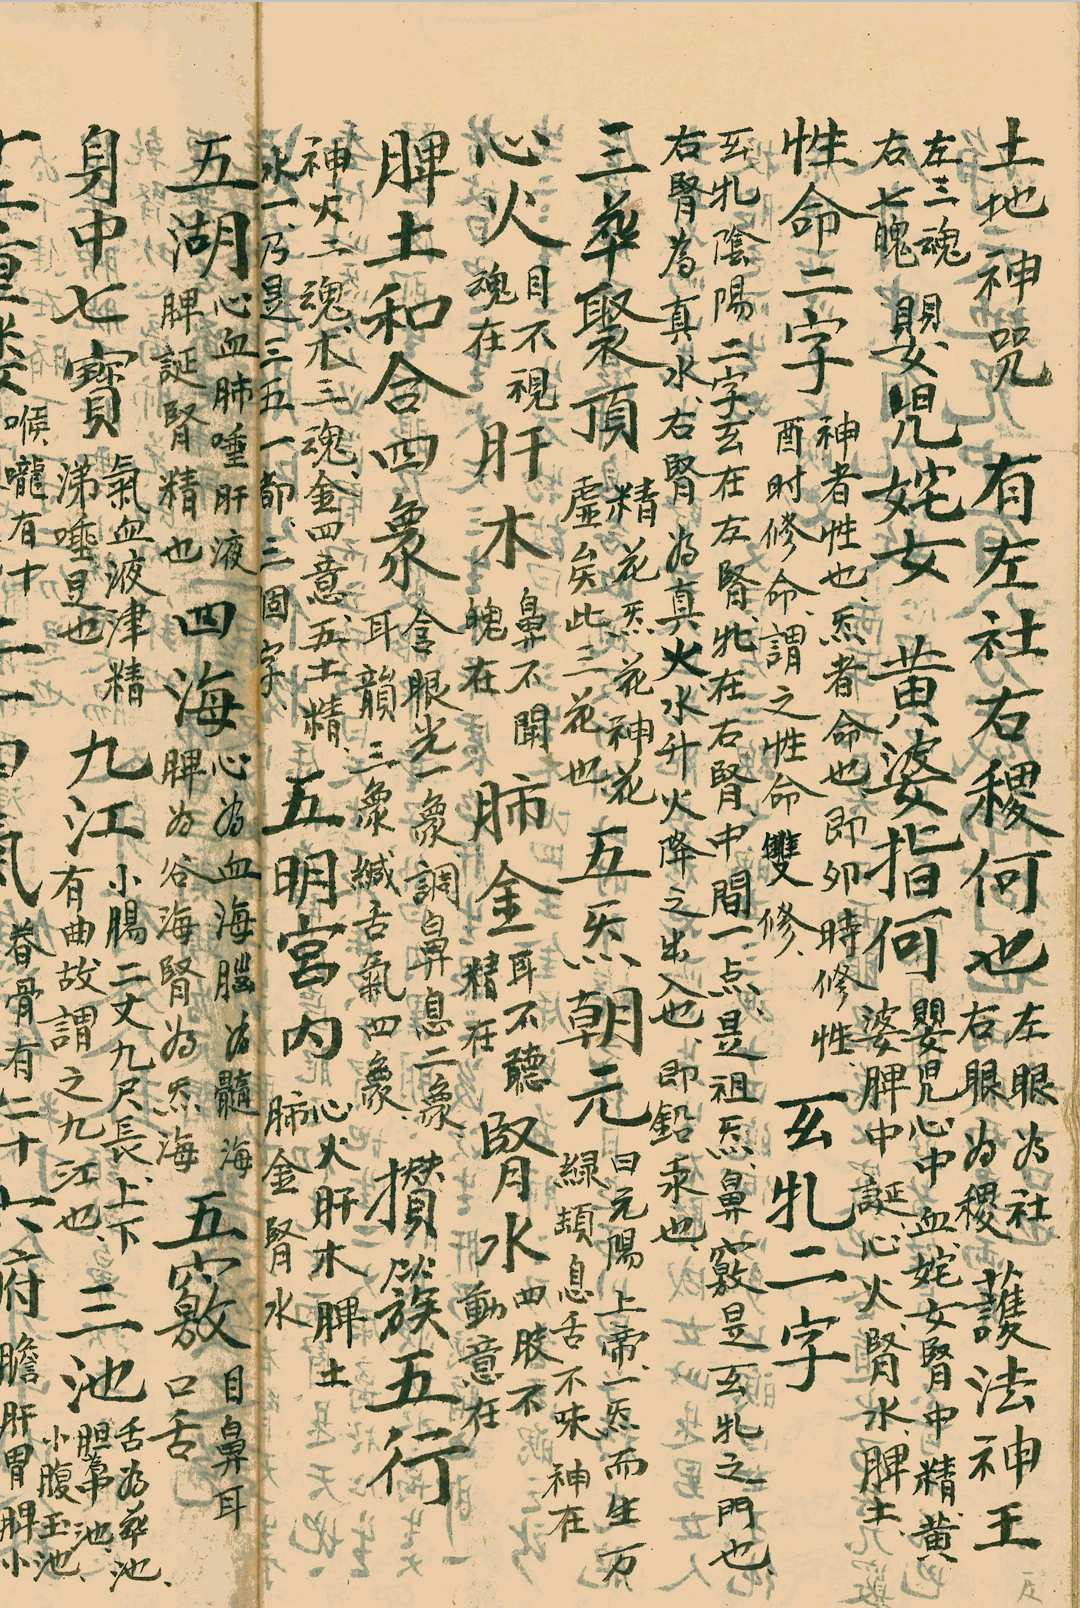 土地神咒 有左社右稷何也 左眼為社右眼為稷 護法神王
左三魂右七魄 嬰兒姹女 黃婆指何 嬰兒心中血、姹女腎中精、黃婆脾中誕、心火、腎水、脾土、
性命二字 神者性也、炁者命也、即卯時修性、酉時修命、謂之性命雙修、 玄牝二字
玄牝陰陽二字、玄在左腎、牝在右腎、中間一点是祖炁、鼻竅是玄牝之門也、
右腎為真水、右腎為真火水升火降之出入也、即鉛汞也、
三華聚頂 精花炁花神花虛矣此三花也 五炁朝元 曰元陽上帝、一炁而生万
心火 目不視魂在 肝木 鼻不聞魄在 肺金 耳不聽精在 腎水 四肢不動意在 息舌不味神在
脾土和合四象 含眼光一象調鼻息二象、耳韻三象緘舌氣四象 攢簇五行
神火二魂木三魂、金四意、五土精、水一乃是三五一都、三個字、 五明宮內 心火肝木脾土肺金腎水
五湖 心血肺唾肝液脾誕腎精也 四海 心為血海腦為髓海脾為谷海腎為炁海 五竅 目鼻耳口舌
身中七寶 氣血液津精涕唾是也 九江 小腸二丈九尺長、上下有曲故謂之九江也、 三池 舌為華池、胆為中池、小腹玉池、
十二重樓 喉嚨有十二 四氣 脊骨有二十 六府 膽肝胃脾小